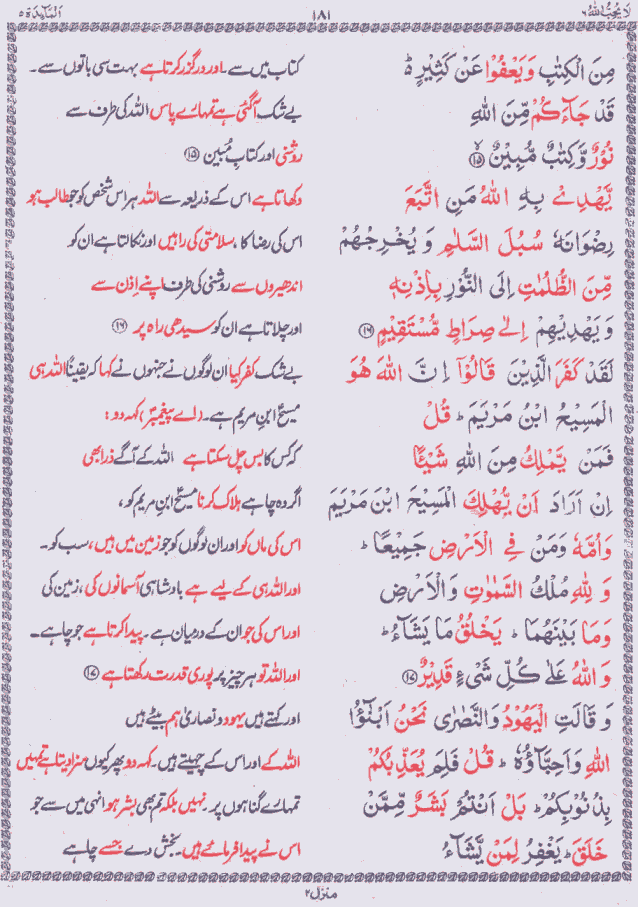 لَا یُحِبُّ اللّٰهُ ٦ ١٨١ اَلْمَآئِدَة ٥
مِنَ الْكِتٰبِ وَ یَعْفُوْا عَنْ كَثِیْرٍ ؕ۬ کتاب میں سے۔ اور درگزر کرتا ہے بہت سی باتوں سے۔
قَدْ جَآءَكُمْ مِّنَ اللّٰهِ بے شک آگئی ہے تمہارے پاس اللہ کی طرف سے
نُوْرٌ وَّ كِتٰبٌ مُّبِیْنٌ ۙ﴿۱۵﴾ روشنی اور کتابِ مُبین ﴿۱۵﴾
یَّهْدِیْ بِهِ اللّٰهُ مَنِ اتَّبَعَ دکھاتا ہے اس کے ذریعہ سے اللہ ہر اس شخص کو جو طالب ہو
رِضْوَانَهٗ سُبُلَ السَّلٰمِ وَ یُخْرِجُهُمْ اس کی رضا کا، سلامتی کی راہیں اور نکالتا ہے ان کو
مِّنَ الظُّلُمٰتِ اِلَی النُّوْرِ بِاِذْنِهٖ اندھیروں سے روشنی کی طرف اپنے اِذن سے
وَ یَهْدِیْهِمْ اِلٰی صِرَاطٍ مُّسْتَقِیْمٍ ﴿۱۶﴾ اور چلاتا ہے ان کو سیدھی راہ پر ﴿۱۶﴾
لَقَدْ كَفَرَ الَّذِیْنَ قَالُوْۤا اِنَّ اللّٰهَ هُوَ بے شک کفر کیا ان لوگوں نے جنہوں نے کہا کہ یقیناً اللہ ہی
الْمَسِیْحُ ابْنُ مَرْیَمَ ؕ قُلْ مسیحؑ ابنِ مریم ہے۔ (اے پیغمبرؐ) کہہ دو:
فَمَنْ یَّمْلِكُ مِنَ اللّٰهِ شَیْـًٔا کہ کس کا بس چل سکتا ہے اللہ کے آگے ذرا بھی
اِنْ اَرَادَ اَنْ یُّهْلِكَ الْمَسِیْحَ ابْنَ مَرْیَمَ اگر وہ چاہے ہلاک کرنا مسیحؑ ابنِ مریم کو،
وَ اُمَّهٗ وَ مَنْ فِی الْاَرْضِ جَمِیْعًا ؕ اس کی ماں کو اور ان لوگوں کو جو زمین میں ہیں، سب کو۔
وَ لِلّٰهِ مُلْكُ السَّمٰوٰتِ وَ الْاَرْضِ اور اللہ ہی کے لیے ہے بادشاہی آسمانوں کی، زمین کی
وَ مَا بَیْنَهُمَا ؕ یَخْلُقُ مَا یَشَآءُ ؕ اور اس کی جو ان کے درمیان ہے۔ پیدا کرتا ہے جو چاہے۔
وَ اللّٰهُ عَلٰی كُلِّ شَیْءٍ قَدِیْرٌ ﴿۱۷﴾ اور اللہ تو ہر چیز پر پوری قدرت رکھتا ہے ﴿۱۷﴾
وَ قَالَتِ الْیَهُوْدُ وَ النَّصٰرٰی نَحْنُ اَبْنٰٓؤُا اور کہتے ہیں یہود و نصاریٰ ہم بیٹے ہیں
اللّٰهِ وَ اَحِبَّآؤُهٗ ؕ قُلْ فَلِمَ یُعَذِّبُكُمْ اللہ کے اور اس کے چہیتے ہیں۔ کہہ دو پھر کیوں سزا دیتا ہے تمہیں
بِذُنُوْبِكُمْ ؕ بَلْ اَنْتُمْ بَشَرٌ مِّمَّنْ تمہارے گناہوں پر۔ نہیں بلکہ تم بھی بشر ہو انہی میں سے جو
خَلَقَ ؕ یَغْفِرُ لِمَنْ یَّشَآءُ اس نے پیدا فرمائے ہیں۔ بخش دے جسے چاہے
منزل ٢